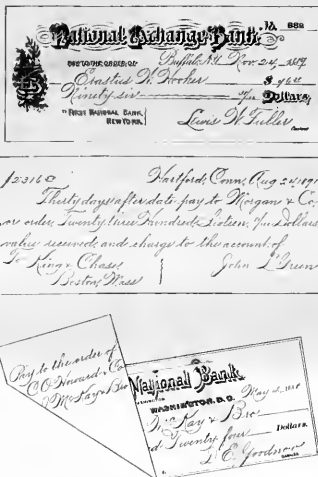 No. 882
National Exchange Bank
Buffalo, N.Y. Nov. 24, 1879.
PAY TO THE ORDER OF
Erastus W. Hooker $96
Ninety-six Dollars,
TO FIRST NATIONAL BANK,
NEW YORK.
Lewis W. Fuller
CASHIER
$2316 Hartford, Conn., Aug. 21, 189
Thirty days after date pay to Morgan & Co.
or order, Twenty-three Hundred Sixteen Dollars
value received, and charge to the account of
To King & Chase, John L. Green
Boston, Mass
Pay to the order of
C. O. Howard & Co
McKay & Bro
National Bank
WASHINGTON, D.C. May
McKay & Bro
Twenty four Dollars.
E. Goodnow
CASHIER